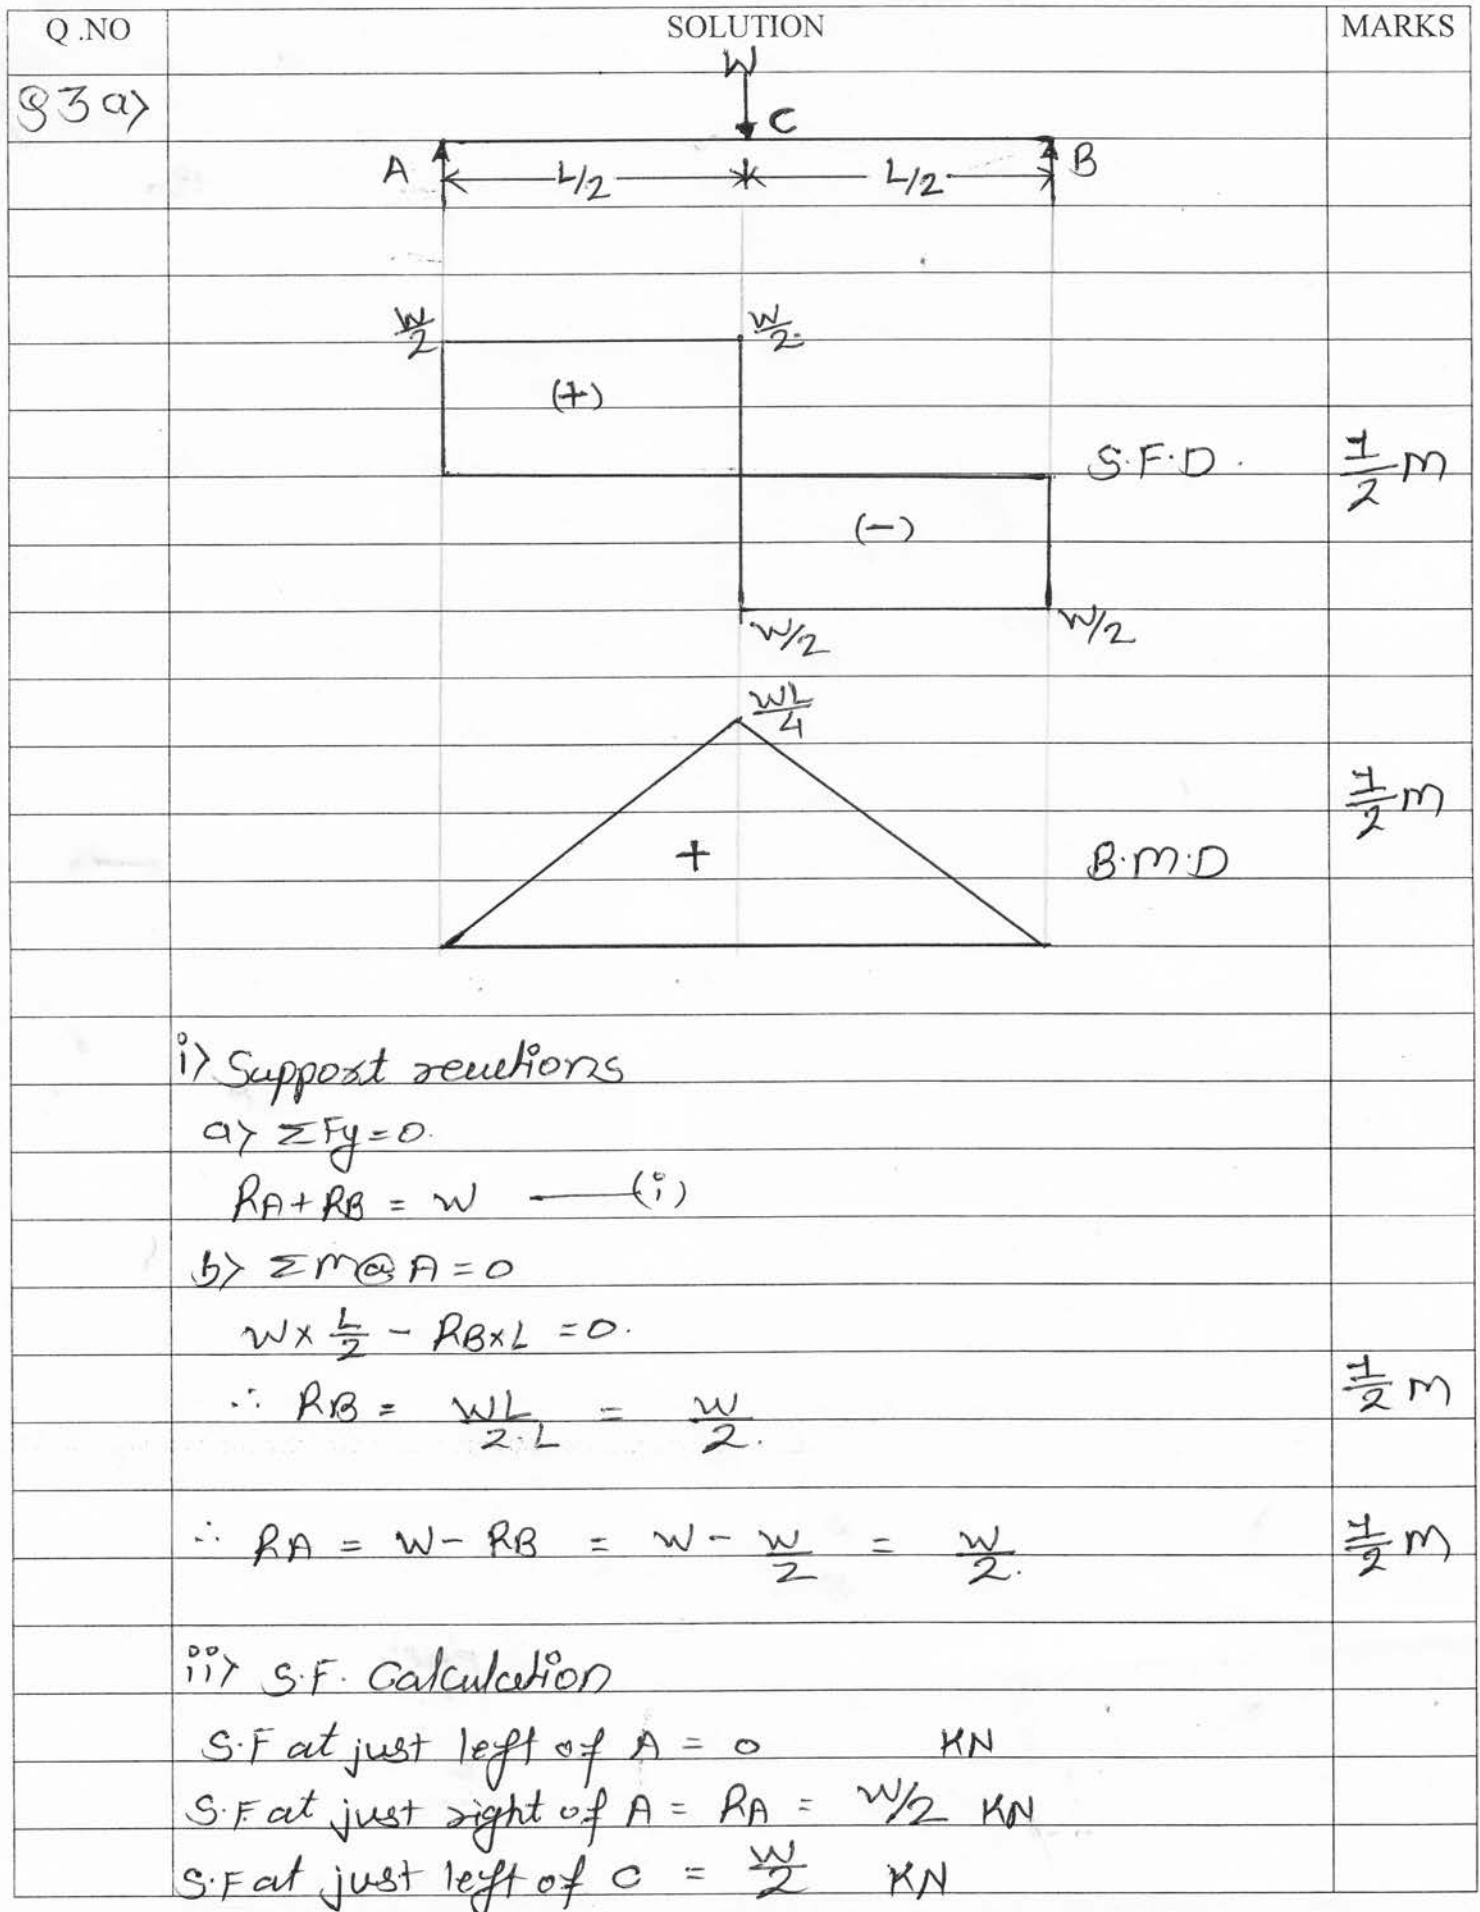 Q .NO SOLUTION MARKS
W
Q3 a>
C
A L/2 L/2 B
W/2 W/2
(+)
S.F.D. 1/2 M
(-)
W/2 W/2
WL/4
1/2 M
+ B.M.D
i> Support reactions
a> ΣFy=0.
RA+RB = W —(i)
b> ΣM@ A = 0
W× L/2 - RB×L = 0.
∴ RB = WL/2.L = W/2. 1/2 M
∴ RA = W- RB = W - W/2 = W/2. 1/2 M
ii> S.F. Calculation
S.F at just left of A = 0 KN
S.F at just right of A = RA = W/2 KN
S.F at just left of C = W/2 KN